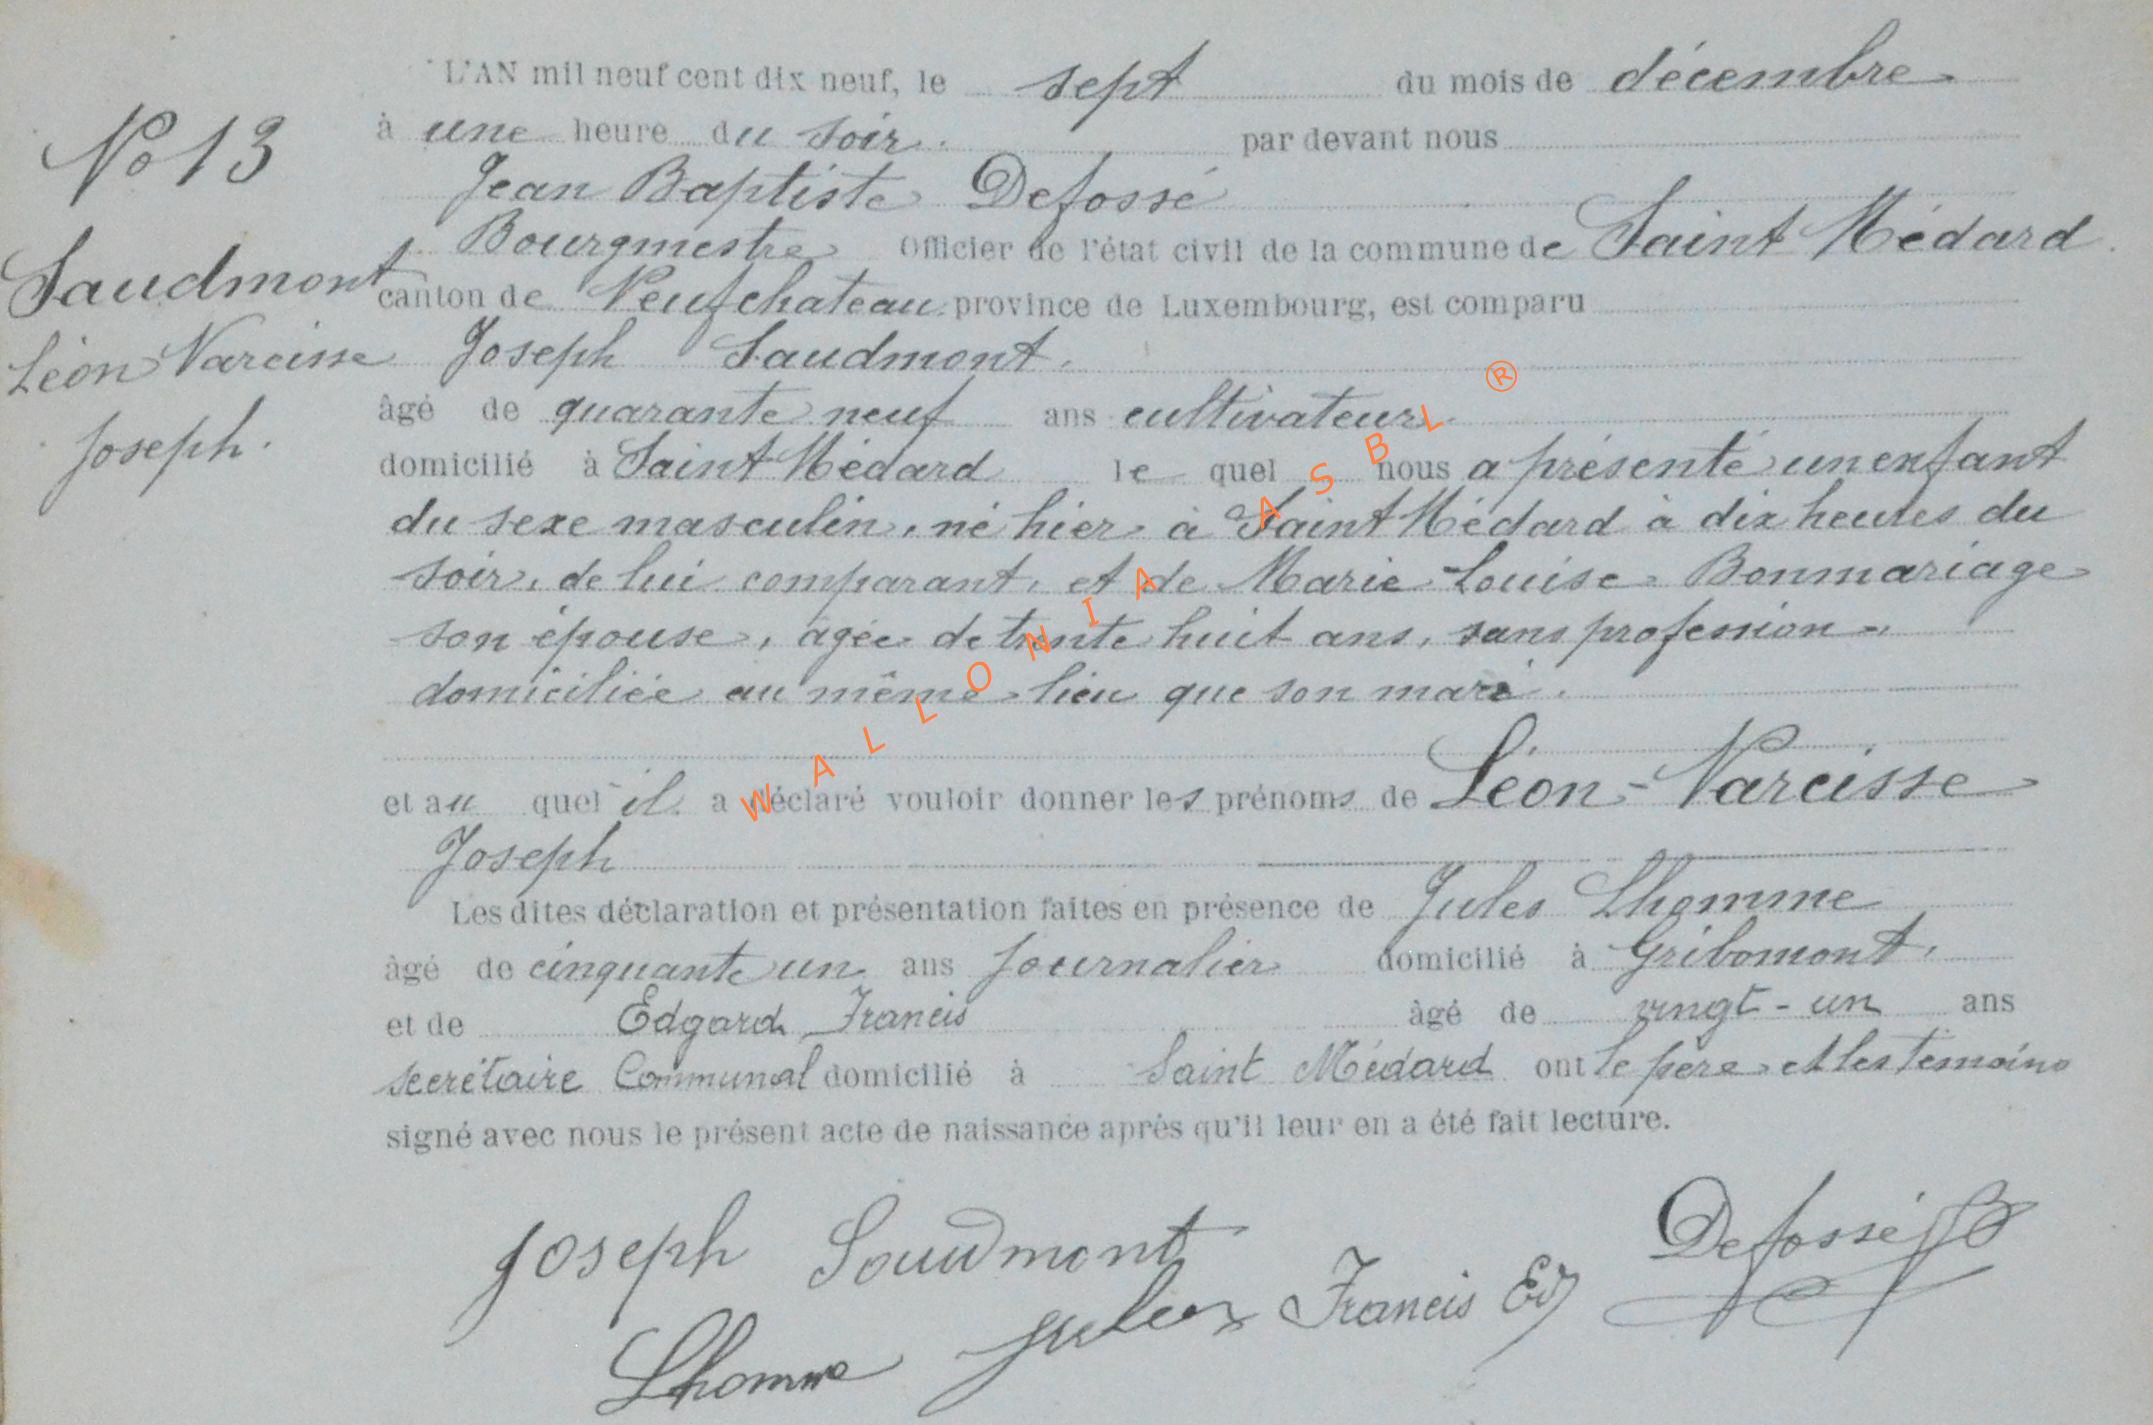 L'AN mil neuf cent dix neuf, le sept du mois de décembre
à une heure du soir. par devant nous
No 13
Jean Baptiste Defossé
Bourgmestre Officier de l'état civil de la commune de Saint Médard
Saudmont
canton de Neufchateau province de Luxembourg, est comparu
Léon Narcisse
Joseph Saudmont.
Joseph.
âgé de quarante neuf ans cultivateur
domicilié à Saint Médard le quel nous a présenté un enfant
du sexe masculin, né hier à Saint Médard à dix heures du
soir, de lui comparant, et de Marie Louise Bonmariage
son épouse, agée de trente huit ans, sans profession
domiciliée au même lieu que son mari.
et au quel il a déclaré vouloir donner les prénoms de Léon-Narcisse
Joseph
Les dites déclaration et présentation faites en présence de Jules Lhomme
âgé de cinquante un ans journalier domicilié à Gribomont,
et de Edgard Francis âgé de vingt-un ans
secrétaire Communal domicilié à Saint Médard ont le père et les témoins
signé avec nous le présent acte de naissance après qu'il leur en a été fait lecture.
Joseph Soudmont
Defossé JB
Lhomme Jules
Francis Ed
WALLONIA ASBL ®